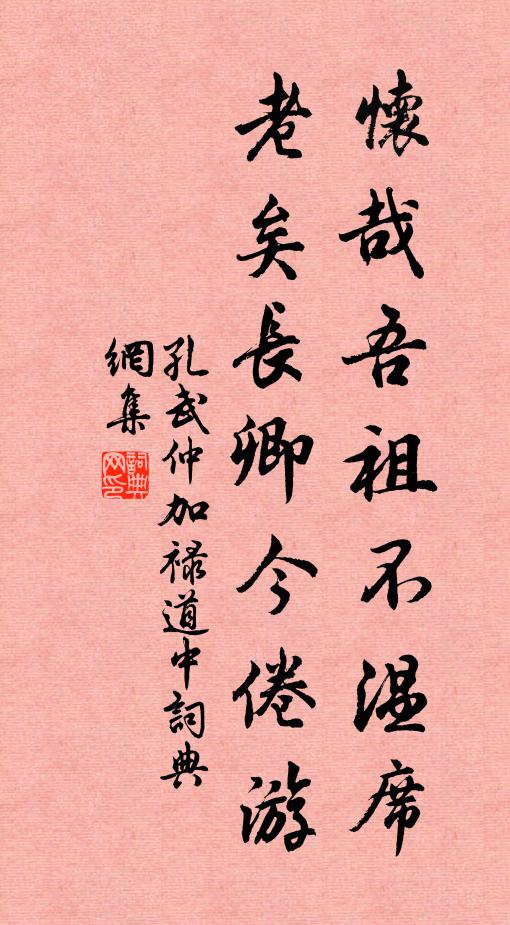 懷哉吾祖不温席
老矣長卿今倦游
孔武仲加禄道中詞典
網集
詞典网印